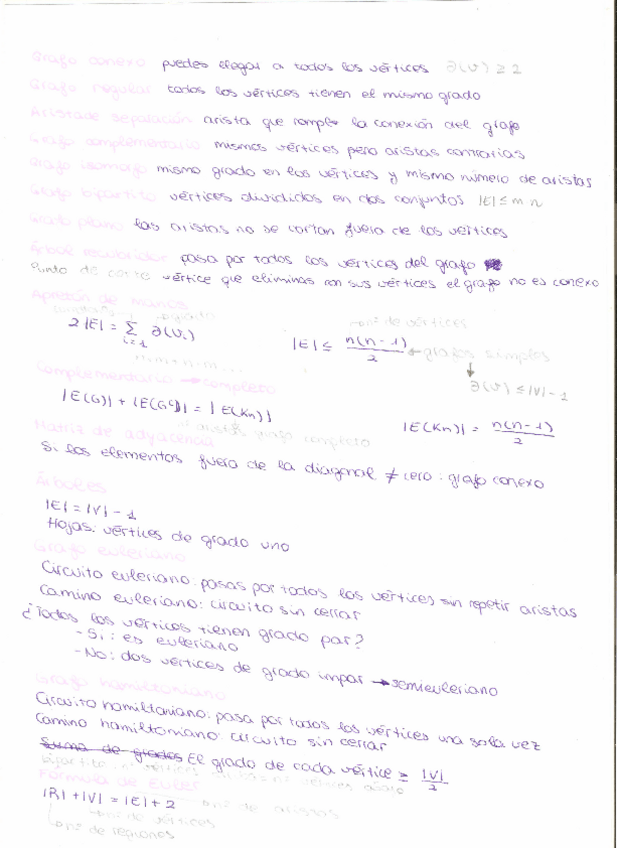 Grafo conexo puedes llegar a todos los vértices ∂(v) ≥ 2
Grafo regular todos los vértices tienen el mismo grado
Arista de separación arista que rompe la conexión del grafo
Grafo complementario mismos vértices pero aristas contrarias
Grafo isomorfo mismo grado en los vértices y mismo número de aristas
Grafo bipartito vértices divididos en dos conjuntos |E| ≤ m n
Grafo plano las aristas no se cortan fuera de los vértices
Árbol recubridor pasa por todos los vértices del grafo
Punto de corte vértice que eliminas con sus vértices el grafo no es conexo
Apretón de manos
grado
nº de vértices
2|E| = Σ i=1 ∂(Vi)
|E| ≤ n(n-1)/2 → grafos simples
∂(v) ≤ |V| - 1
Complementario → completo
|E(G)| + |E(Gᶜ)| = |E(Kn)|
|E(Kn)| = n(n-1)/2
nº aristas grafo completo
Matriz de adyacencia
Si los elementos fuera de la diagonal ≠ cero: grafo conexo
Árboles
|E| = |V| - 1
Hojas: vértices de grado uno
Grafo euleriano
Circuito euleriano: pasas por todos los vértices sin repetir aristas
Camino euleriano: circuito sin cerrar
¿Todos los vértices tienen grado par?
- Si: es euleriano
- No: dos vértices de grado impar → semieuleriano
Grafo hamiltoniano
Circuito hamiltoniano: pasa por todos los vértices una sola vez
Camino hamiltoniano: circuito sin cerrar
Suma de grados El grado de cada vértice ≥ |V|/2
Fórmula de Euler
|R| + |V| = |E| + 2
nº de aristas
nº de vértices
nº de regiones